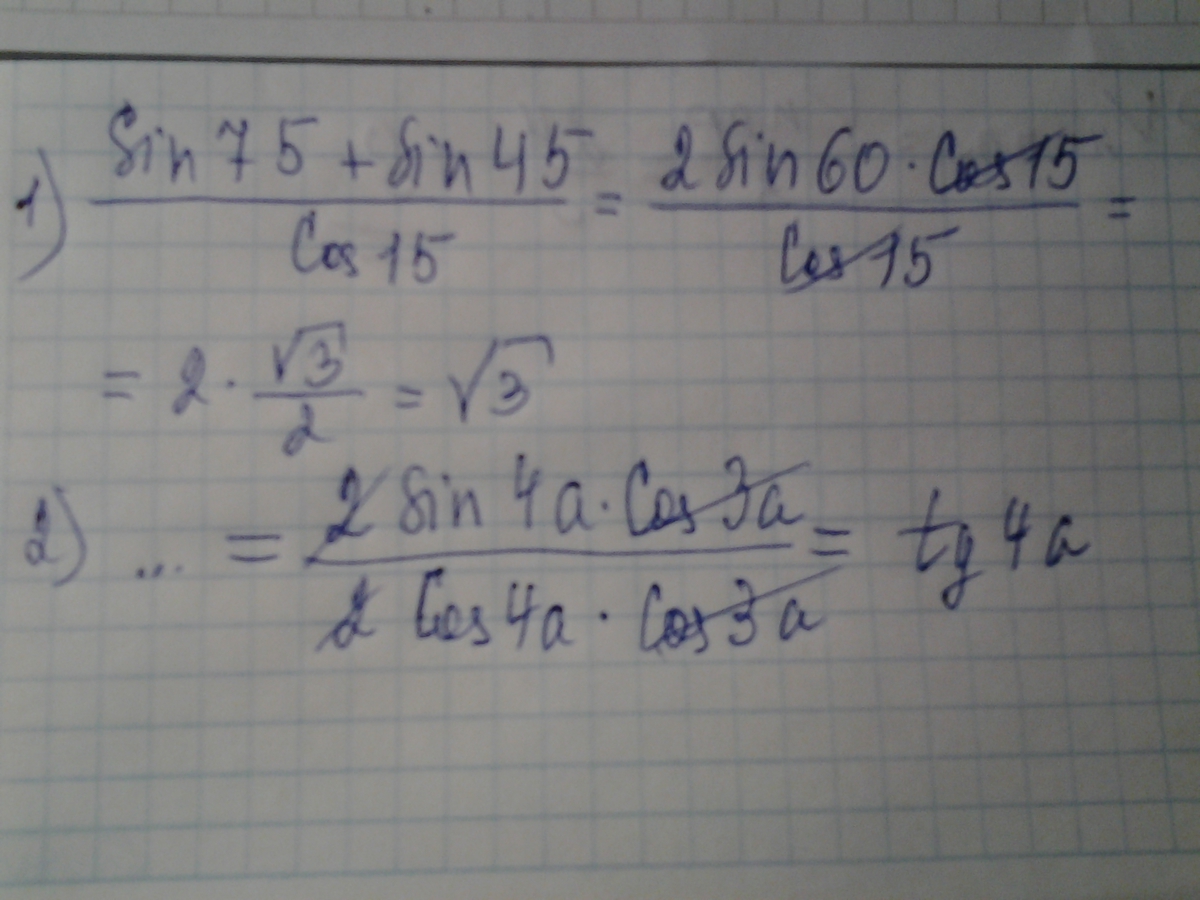 1) (Sin 75 + Sin 45) / Cos 15 = (2 Sin 60 · Cos 15) / Cos 15 =
= 2 · √3 / 2 = √3
2) ... = (2 Sin 4a · Cos 3a) / (2 Cos 4a · Cos 3a) = tg 4a